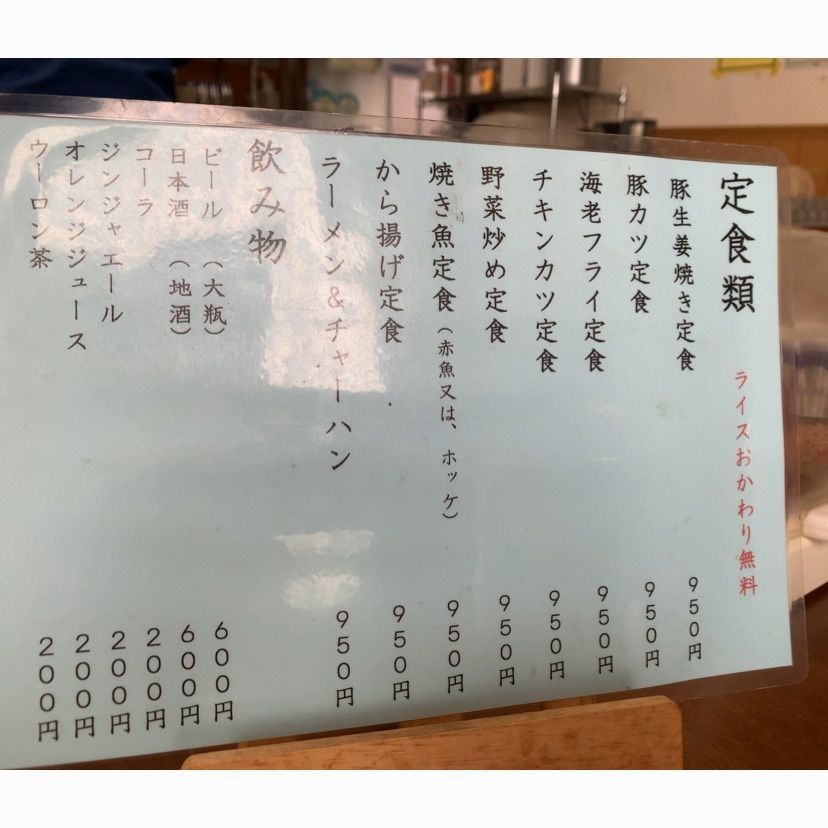 定食類 ライスおかわり無料
豚生姜焼き定食 950円
豚カツ定食 950円
海老フライ定食 950円
チキンカツ定食 950円
野菜炒め定食 950円
焼き魚定食(赤魚又は、ホッケ) 950円
から揚げ定食 950円
ラーメン&チャーハン 950円
飲み物
ビール (大瓶) 600円
日本酒 (地酒) 600円
コーラ 200円
ジンジャエール 200円
オレンジジュース 200円
ウーロン茶 200円